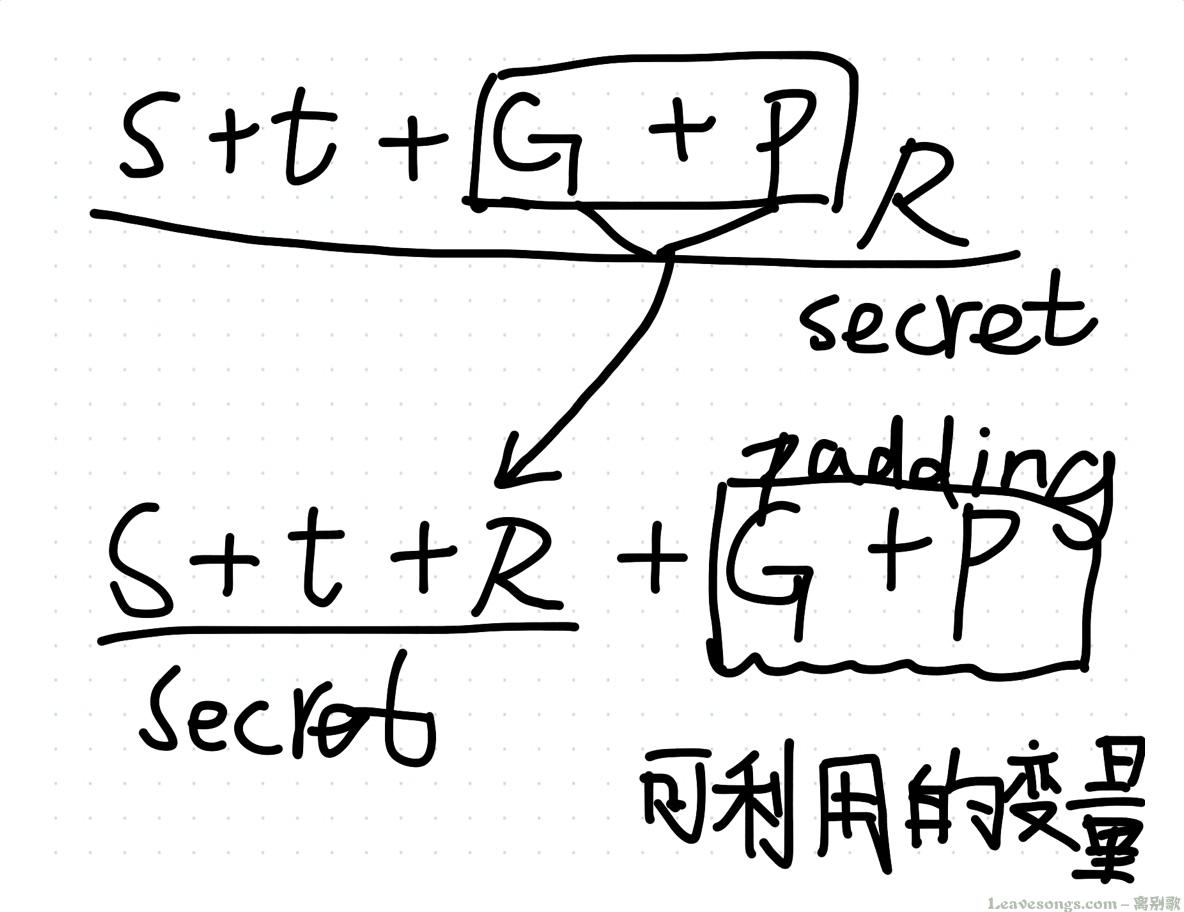 S + t + G + P R
secret
padding
S + t + R + G + P
secret
可利用的变量
Leavesongs.com – 离别歌